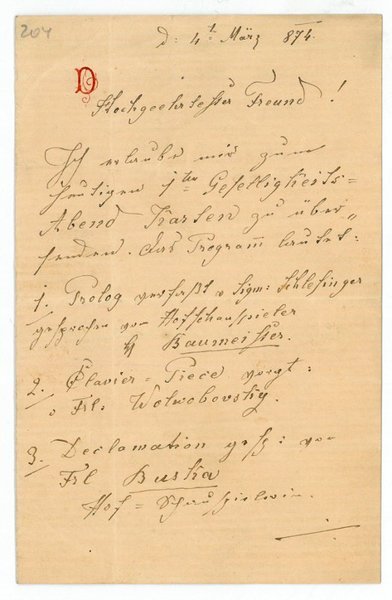 204
d: 4t März 874.
D
Hochgeehrtester Freund!
Ich erlaube mir zum
heutigen 1ten Geselligkeits=
Abend Karten zu über„
senden. Das Programm lautet:
1. Prolog verfaßt v Sigm: Schlesinger
gesprochen vom Hofschauspieler
H Baumeister.
2. Clavier=Piece vorgt:
v Frl: Wolwobovsky.
3. Declamation gesp: von
Frl Buska
Hof=Schauspielerin.